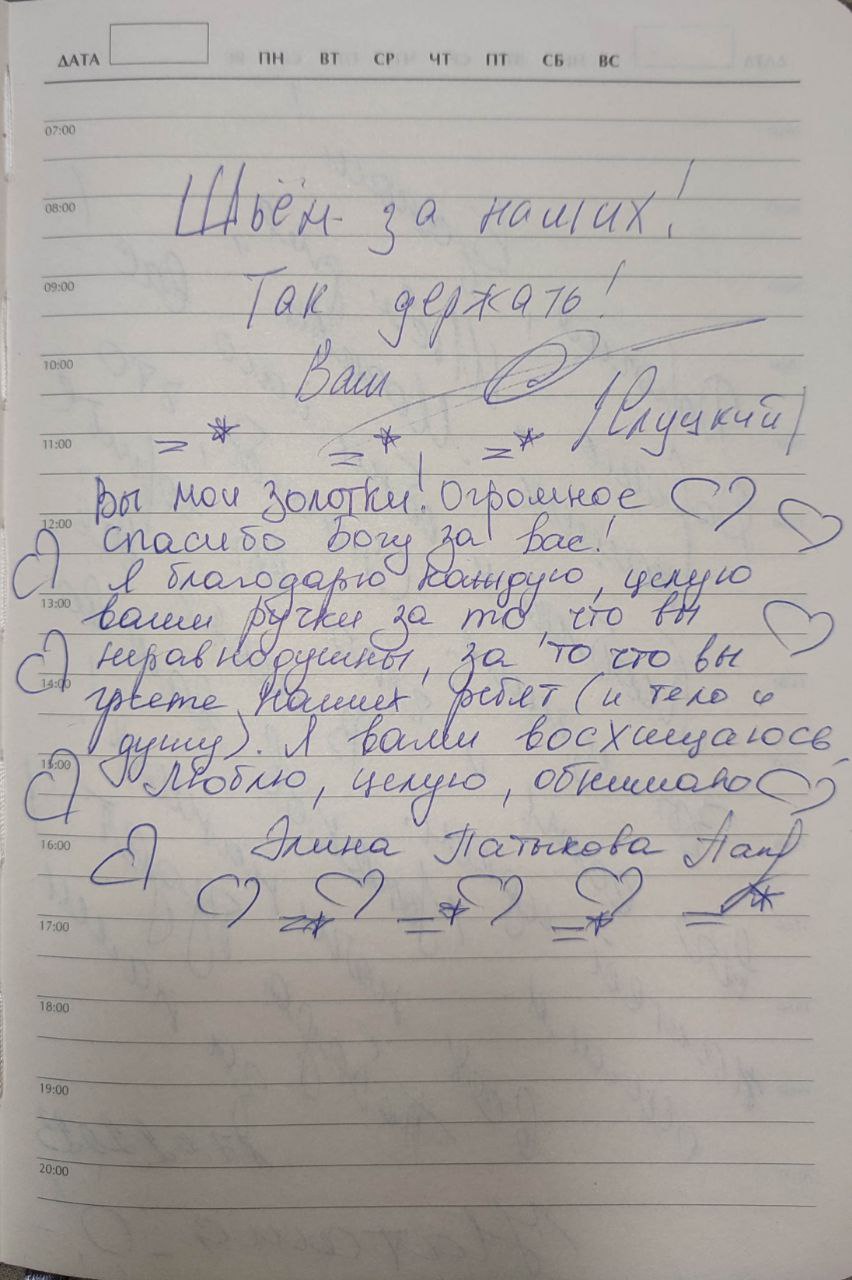 ДАТА ПН ВТ СР ЧТ ПТ СБ ВС
07:00
08:00 Шьём за наших!
09:00 Так держать!
10:00 Ваш
/Слуцкий/
11:00 =* =* =*
Вы мои золотки! Огромное
12:00 спасибо Богу за вас!
Я благодарю каждую, целую
13:00 ваши ручки за то, что вы
неравнодушны, за то что вы
14:00 греете наших ребят (и тело и
душу). Я вами восхищаюсь,
15:00 Люблю, целую, обнимаю
16:00 Элина Патыкова
17:00 =* =* =* =*
18:00
19:00
20:00